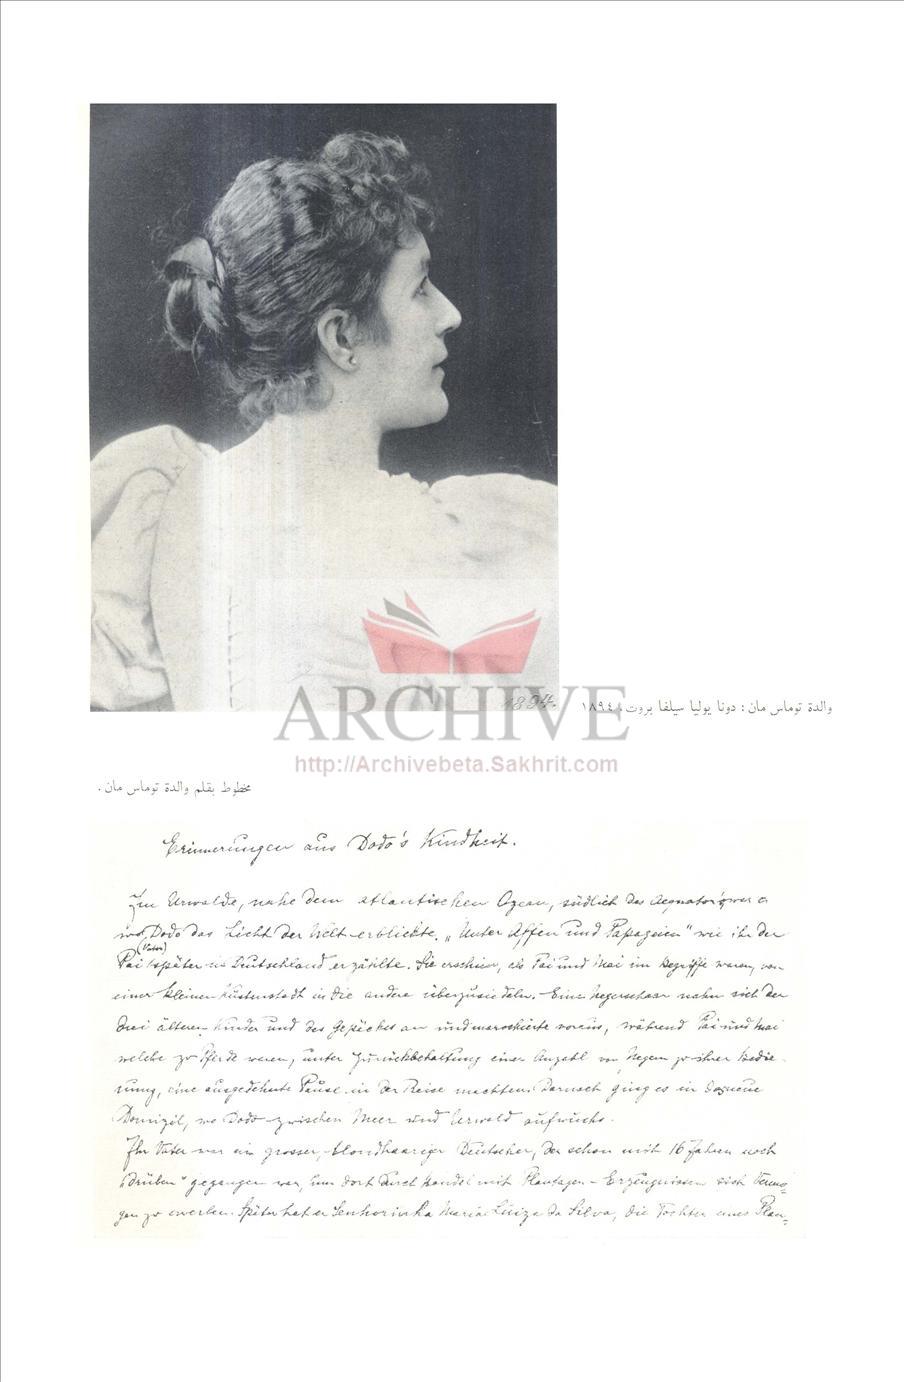 1894.
ARCHIVE
http://Archivebeta.Sakhrit.com
والدة توماس مان: دونا يوليا سيلفا بروت، ١٨٩٤
مخطوط بقلم والدة توماس مان.
Erinnerungen aus Dodo's Kindheit.
Im Urwalde, nahe dem atlantischen Ozean, südlich des Aequators war es
wo Dodo das Licht der Welt erblickte. „Unter Affen und Papageien" wie ihr der
(Vater)
Pai später in Deutschland erzählte. Sie erschien, als Pai und Mai im Begriffe waren, von
einer kleinen Küstenstadt in die andere überzusiedeln. Eine Negerschaar nahm sich der
drei älteren Kinder und des Gepäckes an und marschierte voraus, während Pai und Mai
welche zu Pferde waren, unter Zurückbehaltung einer Anzahl von Negern zu ihrer Bedie-
nung, eine ausgedehnte Pause in der Reise machten. Darnach ging es in das neue
Domizil, wo Dodo zwischen Meer und Urwald aufwuchs.
Ihr Vater war ein grosser, blondhaariger Deutscher, der schon mit 16 Jahren nach
„drüben" gegangen war, um dort durch Handel mit Plantagen-Erzeugnissen sich Vermö-
gen zu erwerben. Später hat er Senhorinha Maria Luiza da Silva, die Tochter eines Plan-